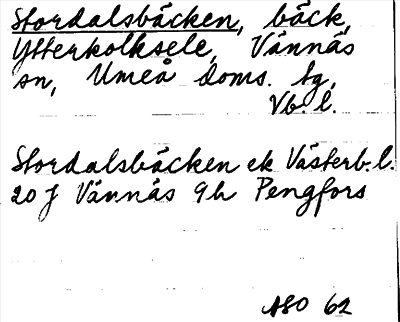 Stordalsbäcken, bäck,
Ytterkolksele, Vännäs
sn, Umeå doms. tg,
Vb. l.
Stordalsbäcken ek Västerb. l.
20 J Vännäs 9h Pengfors
ASO 62